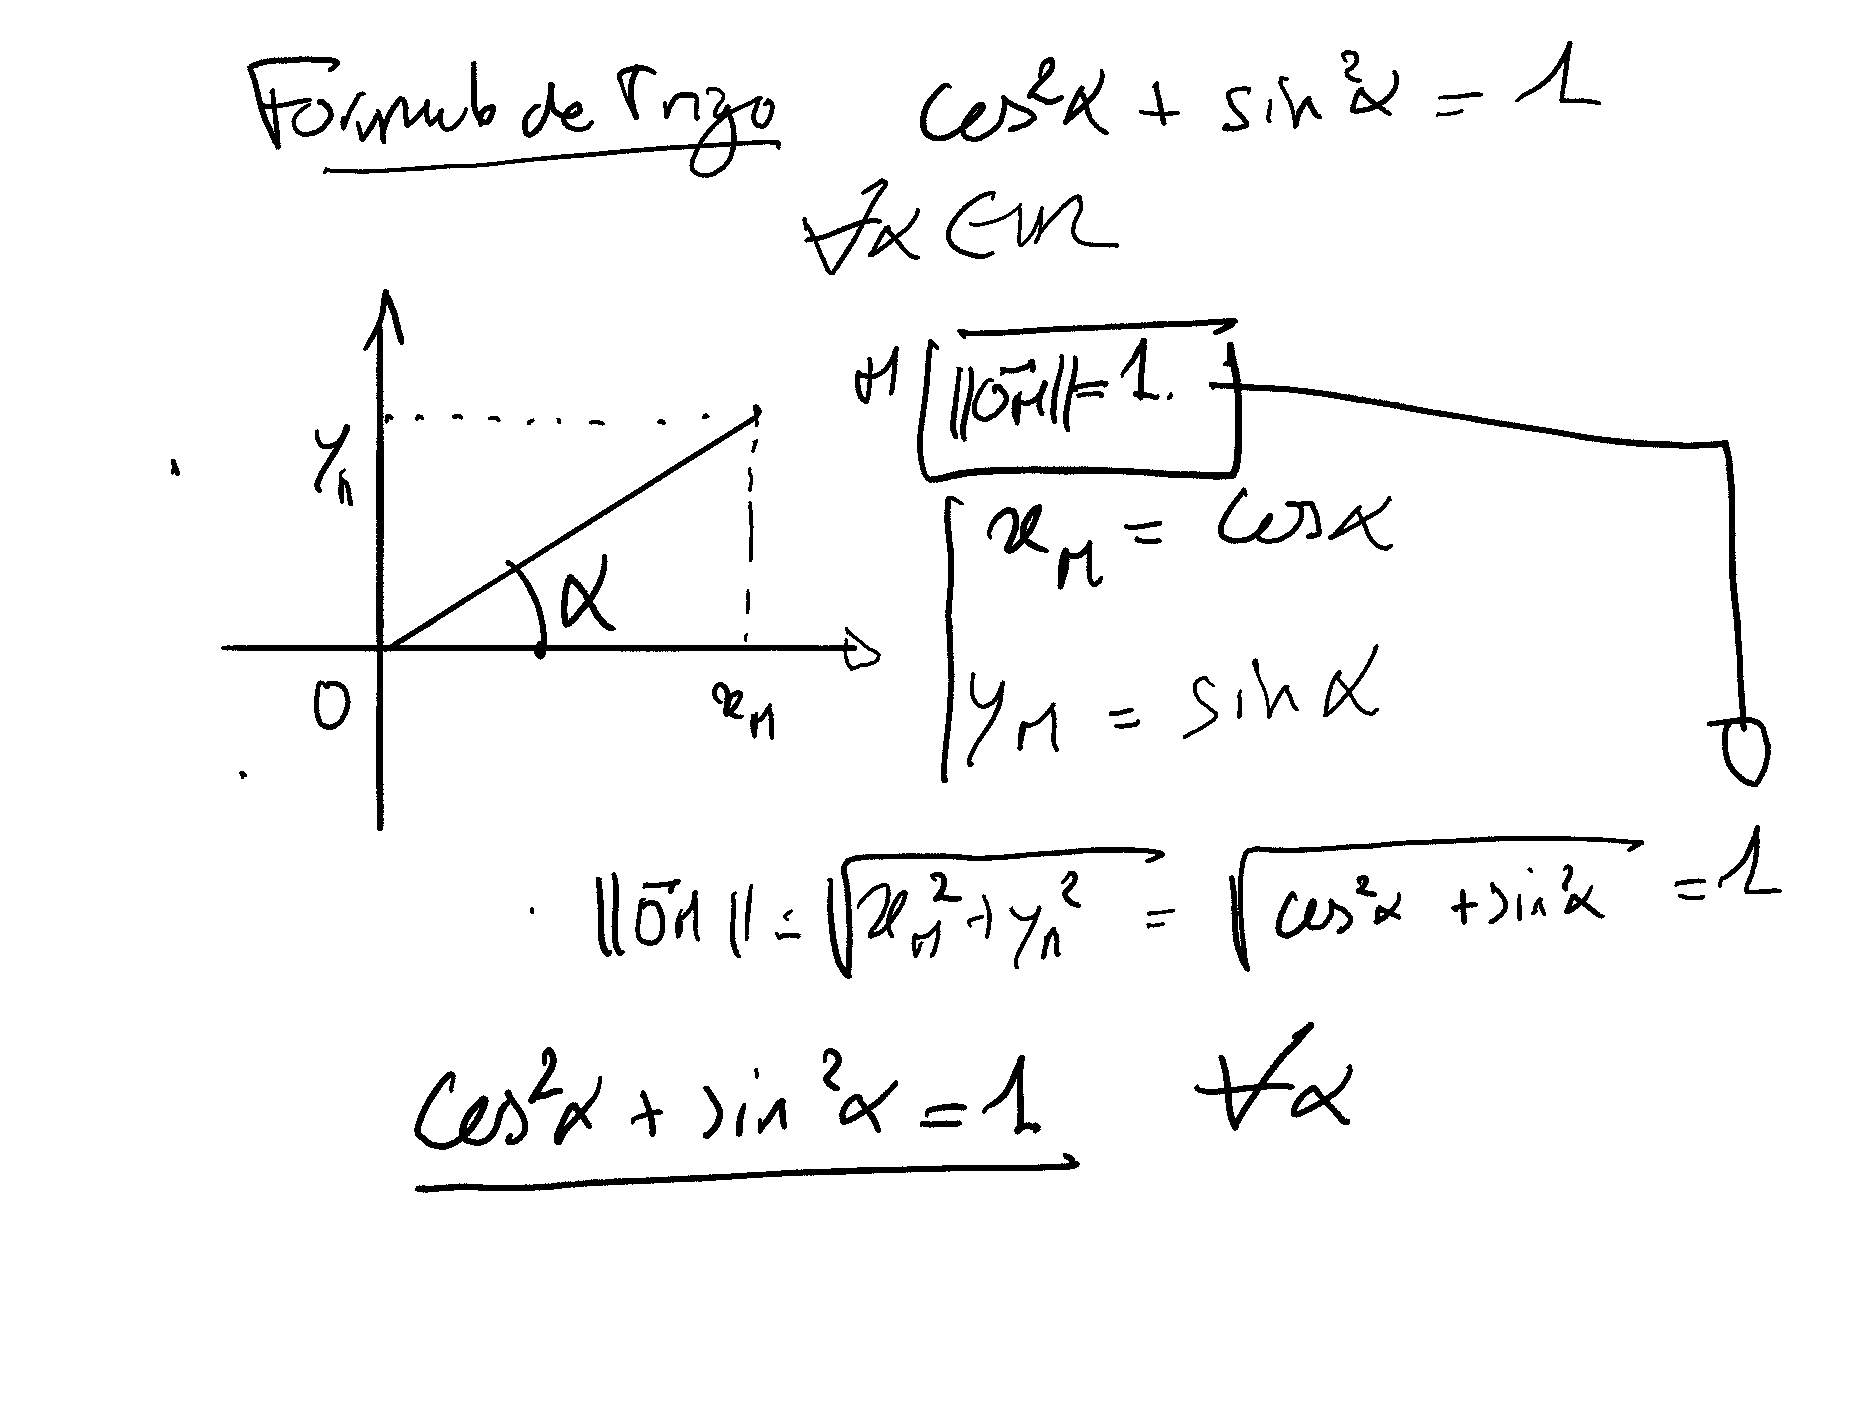 Formule de Trigo cos²α + sin²α = 1
∀α ∈ ℝ
M ||OM|| = 1.
y_M
x_M = cosα
α
O x_M
y_M = sin α
||OM|| = √(x_M² + y_M²) = √(cos²α + sin²α) = 1
cos²α + sin²α = 1 ∀α